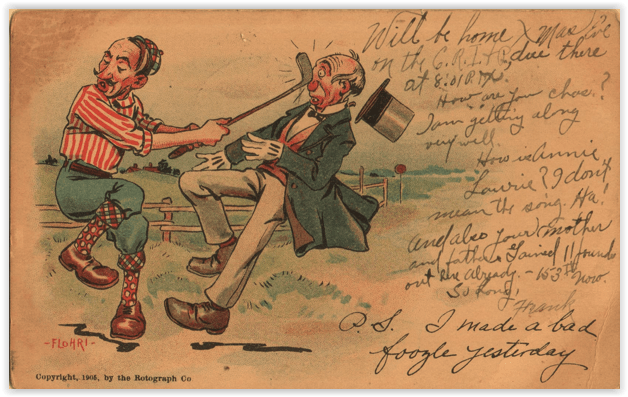 Will be home Xmas Eve
on the C.R.I. & P. due there
at 8:01 P.M.
How are you chas.?
I am getting along
very well.
How is Annie
Lawrie? I don't
mean the song. Ha!
And also your mother
and father. Gained 11 pounds
out here already. — 153 lb now.
So long,
Frank
P.S. I made a bad
foozle yesterday
-FLOHRI-
Copyright, 1905, by the Rotograph Co